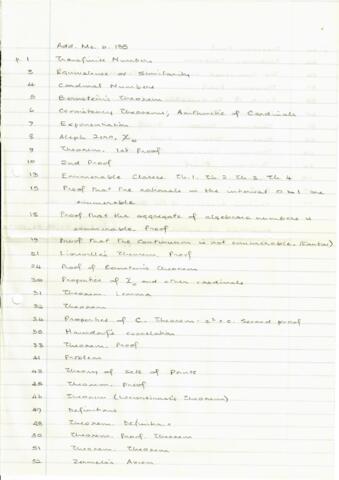 Add. Ms. a. 155
p. 1 Transfinite Numbers
3 Equivalence or Similarity
4 Cardinal Numbers
5 Bernstein's Theorem
6 Consistency Theorems, Arithmetic of Cardinals
7 Exponentiation
8 Aleph Zero, ℵ₀
9 Theorem. 1st Proof
10 2nd Proof
13 Enumerable Classes. Th. 1. Th. 2. Th. 3. Th. 4
15 Proof that the rationals in the interval 0 to 1 are
enumerable
18 Proof that the aggregate of algebraic numbers is
enumerable. Proof
19 Proof that the Continuum is not enumerable. (Cantor)
21 Liouville's Theorem. Proof
24 Proof of Bernstein's Theorem
30 Properties of ℵ₀ and other cardinals
31 Theorem. Lemma
32 Theorem
34 Properties of C. Theorem. Second proof
38 Theorem. Proof
41 Problem
43 Theory of Sets of Points
45 Theorem. Proof
46 Theorem
47 Definitions
48 Theorem. Definitions
50 Theorem. Proof. Theorem
51 Theorem. Theorem
52 Zermelo's Axiom